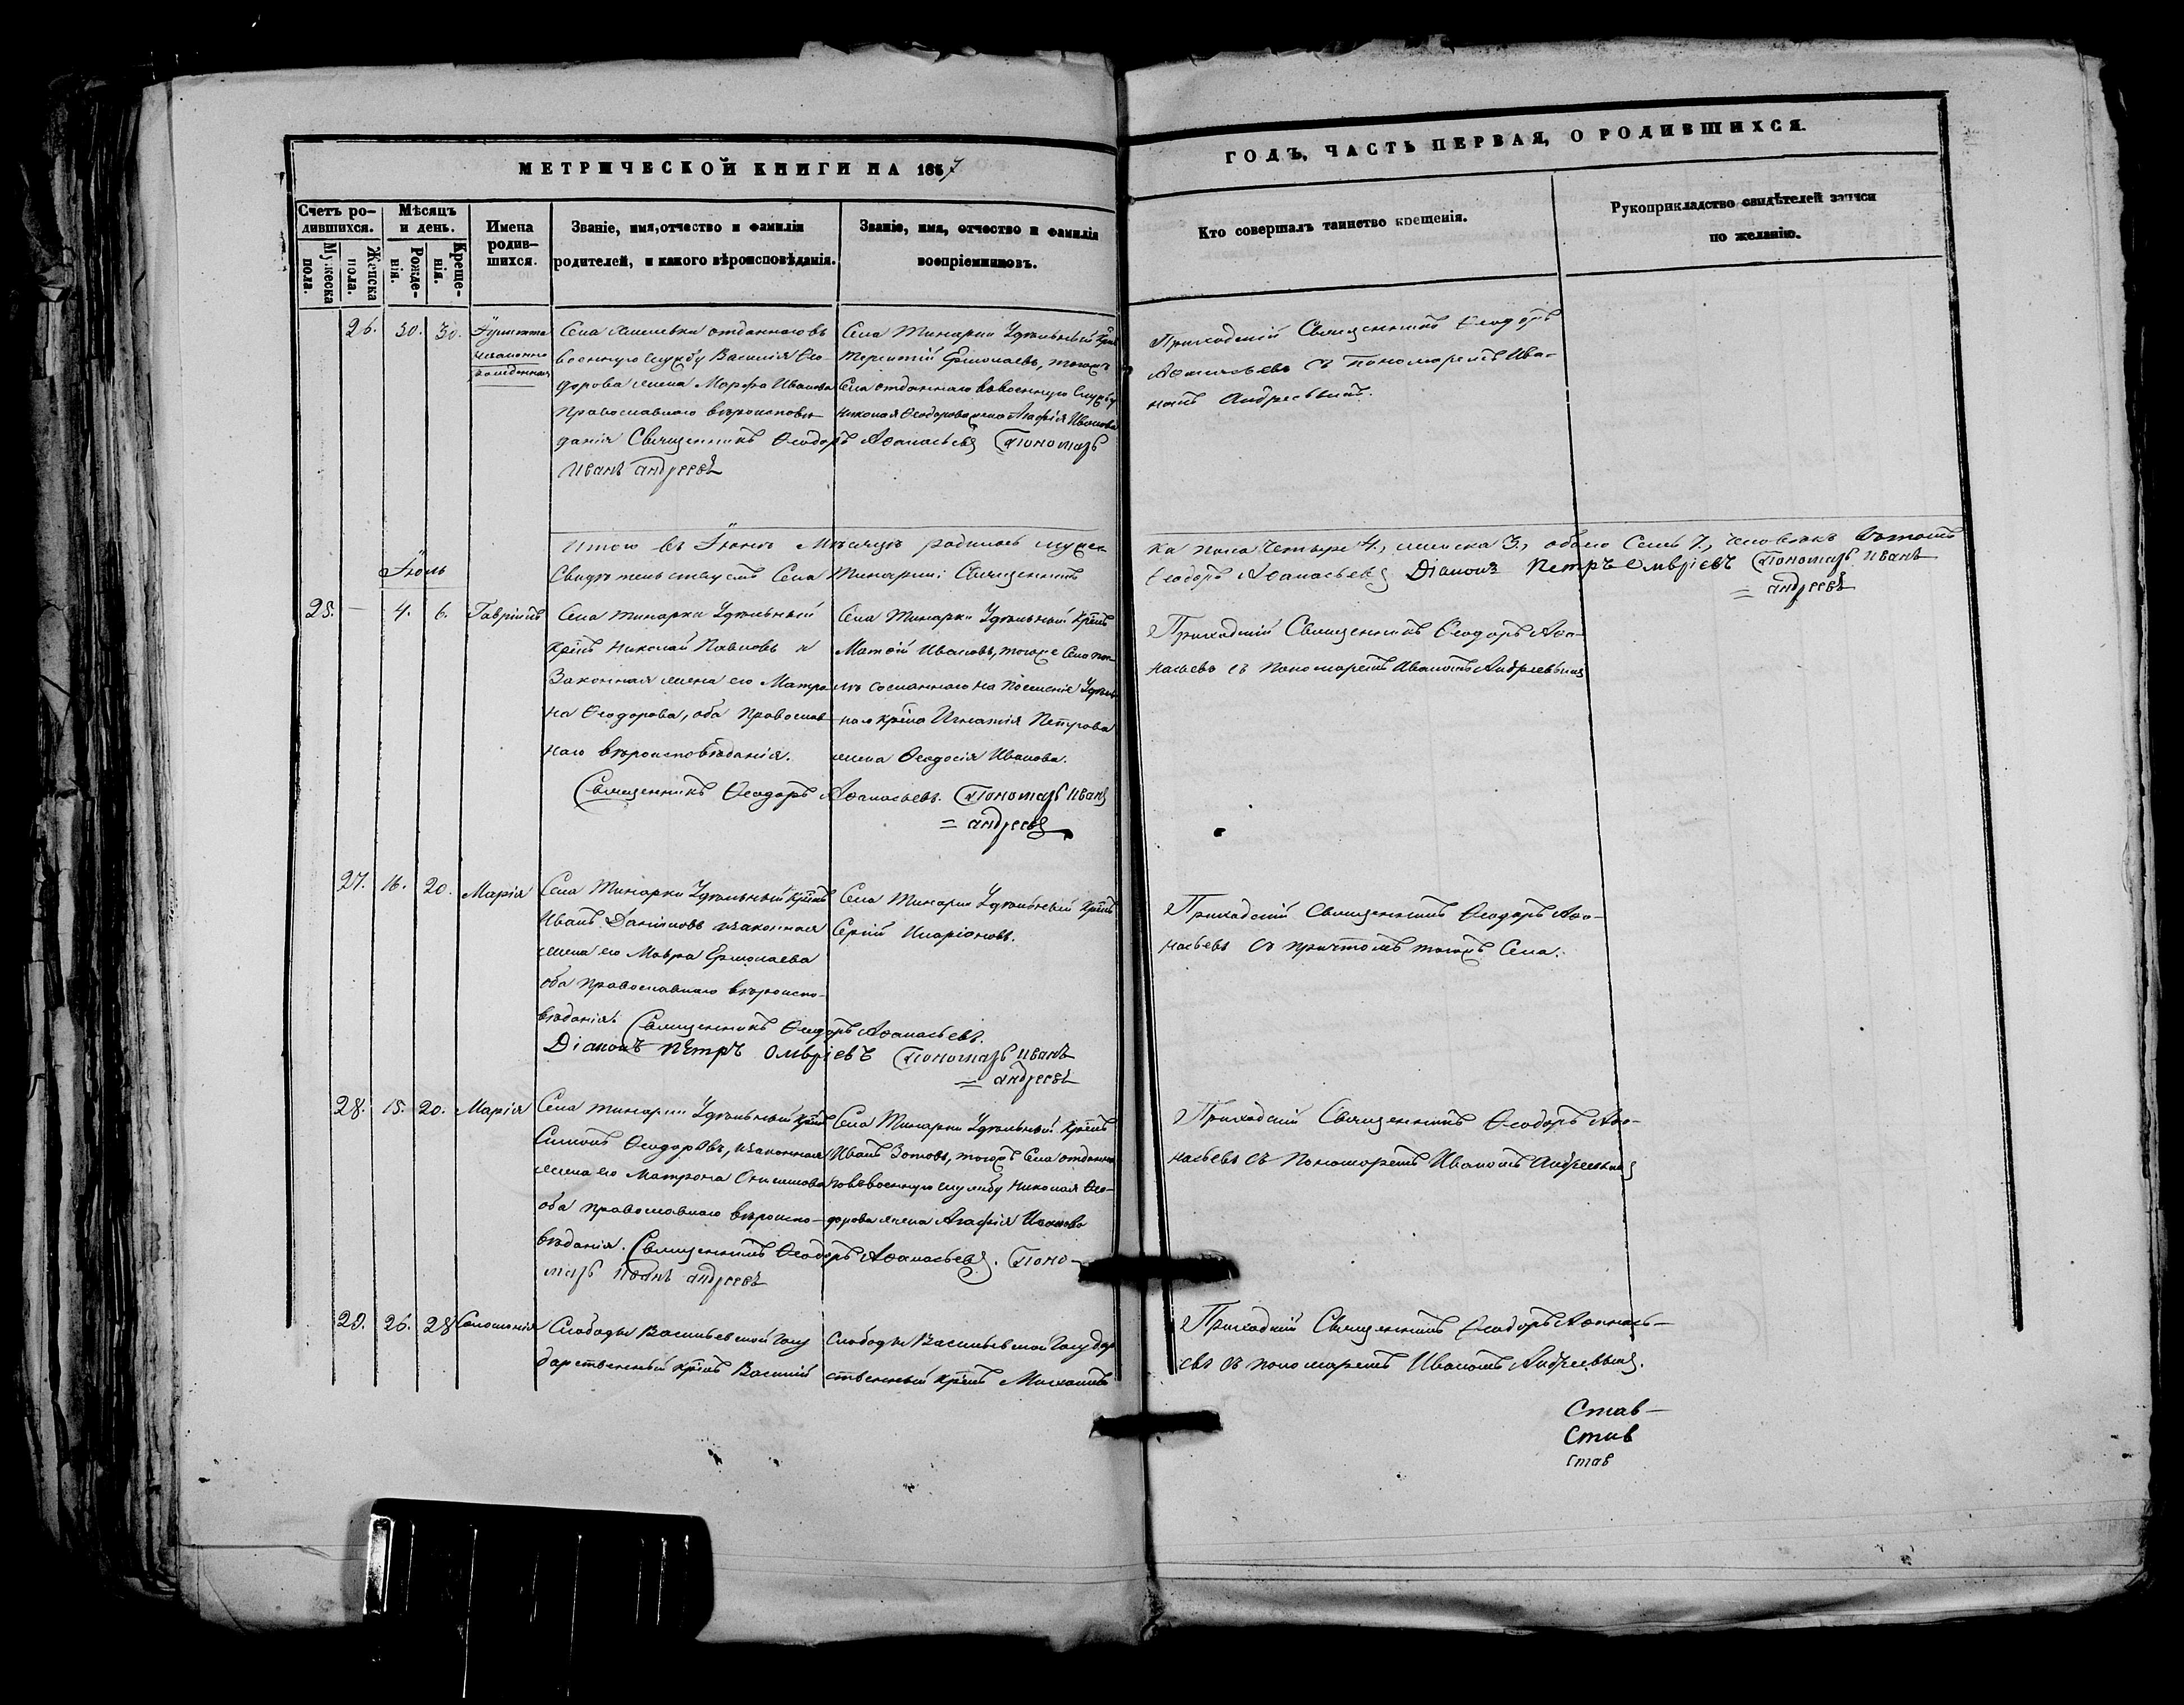 МЕТРИЧЕСКОЙ КНИГИ НА 1857
ГОДЪ, ЧАСТЬ ПЕРВАЯ, О РОДИВШИХСЯ.
Счетъ ро-
дившихся.
Мужеска
пола.
Женска
пола.
Мѣсяцъ
и день.
Рожде-
нія.
Креще-
нія.
Имена
родив-
шихся.
Званіе, имя, отчество и фамилія
родителей, и какого вѣроисповѣданія.
Званіе, имя, отчество и фамилія
воспріемниковъ.
Кто совершалъ таинство крещенія.
Рукоприкладство свидѣтелей записи
по желанію.
26. 30. 30.
Іулитта
незаконно
рожденная
Села отданнаго въ
военную службу Василія Ѳео-
дорова жена Марфа Иванова
Православнаго вѣроисповѣ-
данія Священникъ Ѳеодоръ Аѳанасьевъ Пономарь
Иванъ Андреевъ
Села Тинарки Удѣльный Крѣнъ
Терентій Ермолаевъ, тогожъ
Села отданнаго въ военную службу
Николая Ѳеодорова жена Агафія Иванова
Приходскій Священникъ Ѳеодоръ
Аѳанасьевъ съ пономаремъ Ива-
номъ Андреевымъ.
Итого въ Іюнѣ Мѣсяцѣ родилось мужес-
ка пола четыре 4., женска 3., обоего Семь 7., человѣкъ Вътомъ
Свидѣтельствуемъ Села Тинарки: Священникъ
Ѳеодоръ Аѳанасьевъ Діаконъ Петръ Олввріевъ Пономарь Иванъ
= Андреевъ
Іюль
25. — 4. 6. Гавріилъ
Села Тинарки Удѣльный
Крѣнъ Николай Павловъ и
Законная жена его Матро-
на Ѳеодорова, оба Православ-
наго вѣроисповѣданія.
Священникъ Ѳеодоръ Аѳанасьевъ. Пономарь Иванъ
= Андреевъ
Села Тинарки Удѣльный Крѣнъ
Матѳій Ивановъ, тогоже Села
сосланнаго на Поселеніе Удѣль-
наго крѣна Игнатія Петрова
жена Ѳеодосія Иванова.
Приходскій Священникъ Ѳеодоръ Аѳа-
насьевъ съ Пономаремъ Иваномъ Андреевымъ
27. 16. 20. Марія
Села Тинарки Удѣльный крѣнъ
Иванъ Даниловъ изаконная
жена его Мавра Ермолаева
оба православнаго вѣроиспо-
вѣданія. Священникъ Ѳеодоръ Аѳанасьевъ.
Діаконъ Петръ Олввріевъ Пономарь Иванъ
= Андреевъ
Села Тинарки Удѣльный Крѣнъ
Сергій Иларіоновъ.
Приходскій Священникъ Ѳеодоръ Аѳа-
насьевъ съ причтомъ тогожъ Села.
28. 15. 20. Марія
Села Тинарки Удѣльный Крѣнъ
Симонъ Ѳеодоровъ, изаконная
жена его Матрона Онисимова
оба православнаго вѣроиспо-
вѣданія. Священникъ Ѳеодоръ Аѳанасьевъ. Поно-
марь Иванъ Андреевъ
Села Тинарки Удѣльный Крѣнъ
Иванъ Зотовъ, тогожъ Села отданна-
го въ военную службу Николая Ѳео-
дорова жена Агафія Иванова
Приходскій Священникъ Ѳеодоръ Аѳа-
насьевъ съ Пономаремъ Иваномъ Андреевымъ
29. 26. 28 Соломонія
Слободы Васильевской Госу
дарственный крѣнъ Василій
Слободы Васильевской Государ
ственный Крѣнъ Михаилъ
Приходскій Священникъ Ѳеодоръ Аѳанась-
евъ съ пономаремъ Иваномъ Андреевымъ.
Став-
Став
Став